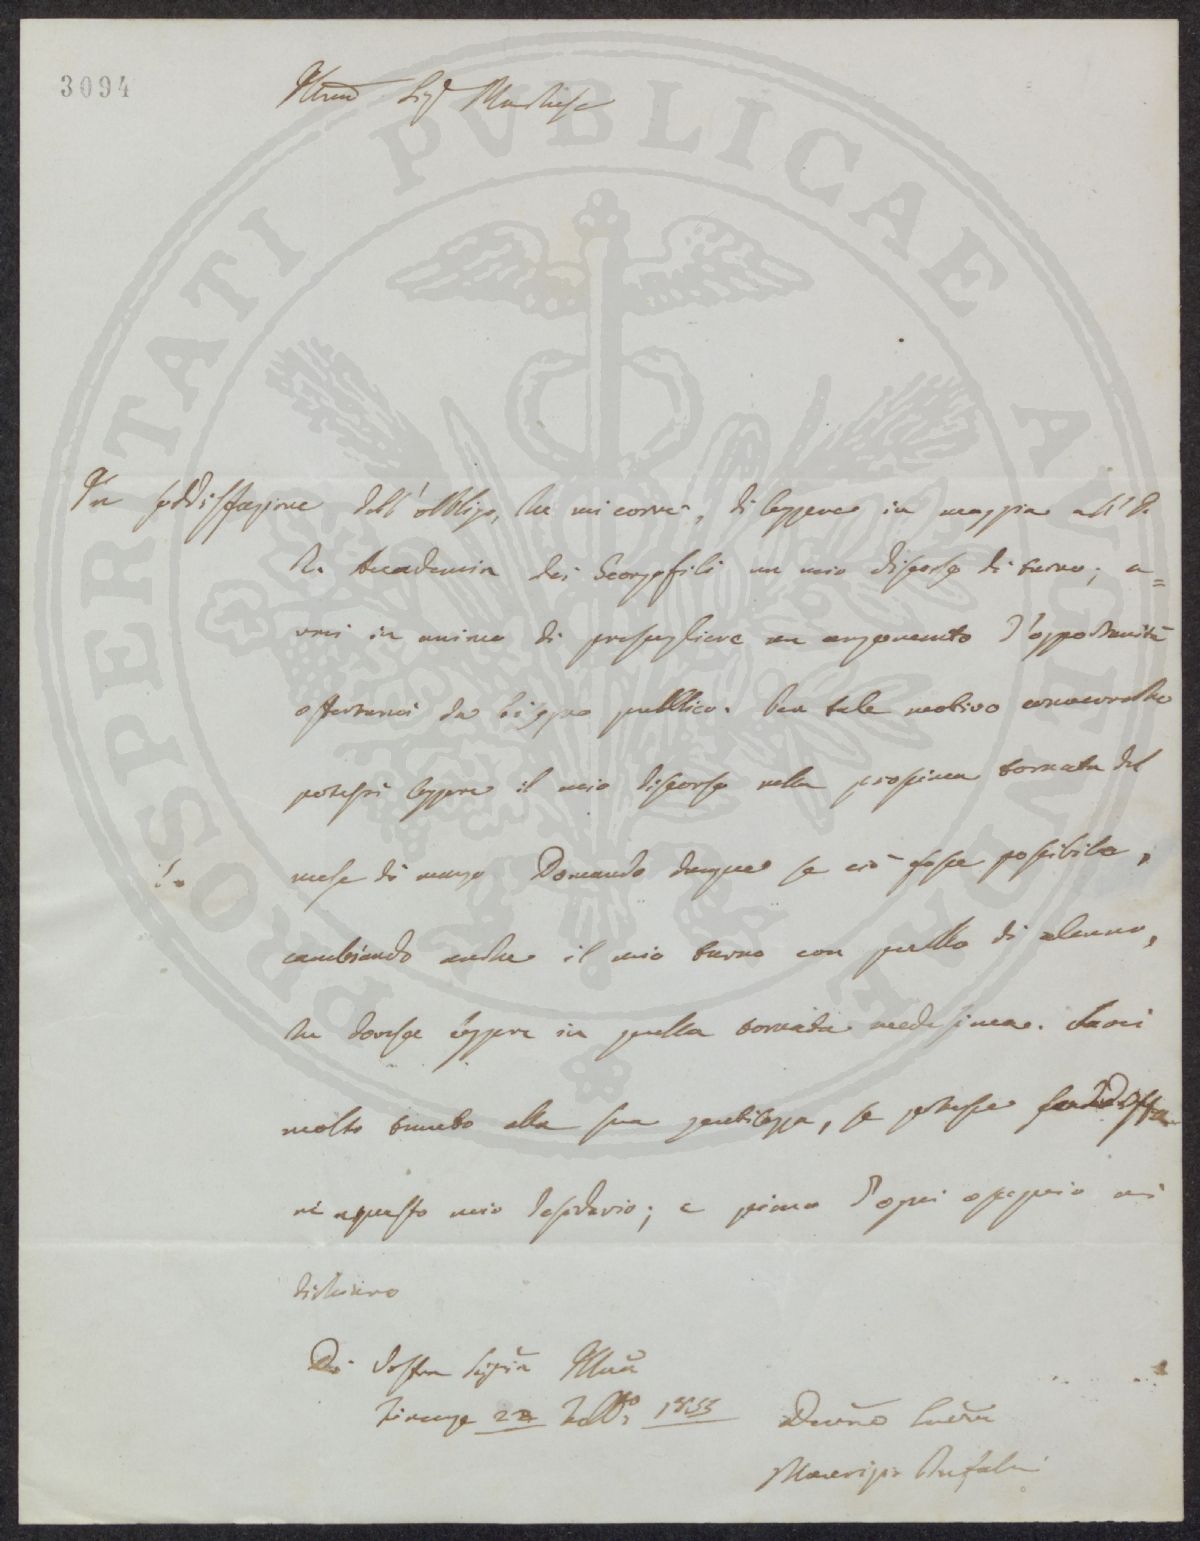 3094
Illmo Sigr Marchese
In soddisfazione dell'obbligo, che mi corre, di leggere in maggio all'I.
R. Accademia dei Georgofili un mio discorso di turno; a=
vrei in animo di prescegliere un argomento d'opportunità
offertami da bisogno pubblico. Per tale motivo amerei che
potessi leggere il mio discorso nella prossima tornata del
mese di marzo Domando dunque se ciò fosse possibile,
cambiando anche il mio turno con quello di alcuno,
che dovesse leggere in quella tornata medesima. Sarei
molto tenuto alla sua gentilezza, se potesse soddisfa
re a questo mio desiderio; e pieno d'ogni ossequio mi
dichiaro
Di Vostra Signria Illma
Firenze 22 Febbo 1855
Devmo Servre
Maurizio Bufalini
PROSPERITATI PVBLICAE AVGENDAE